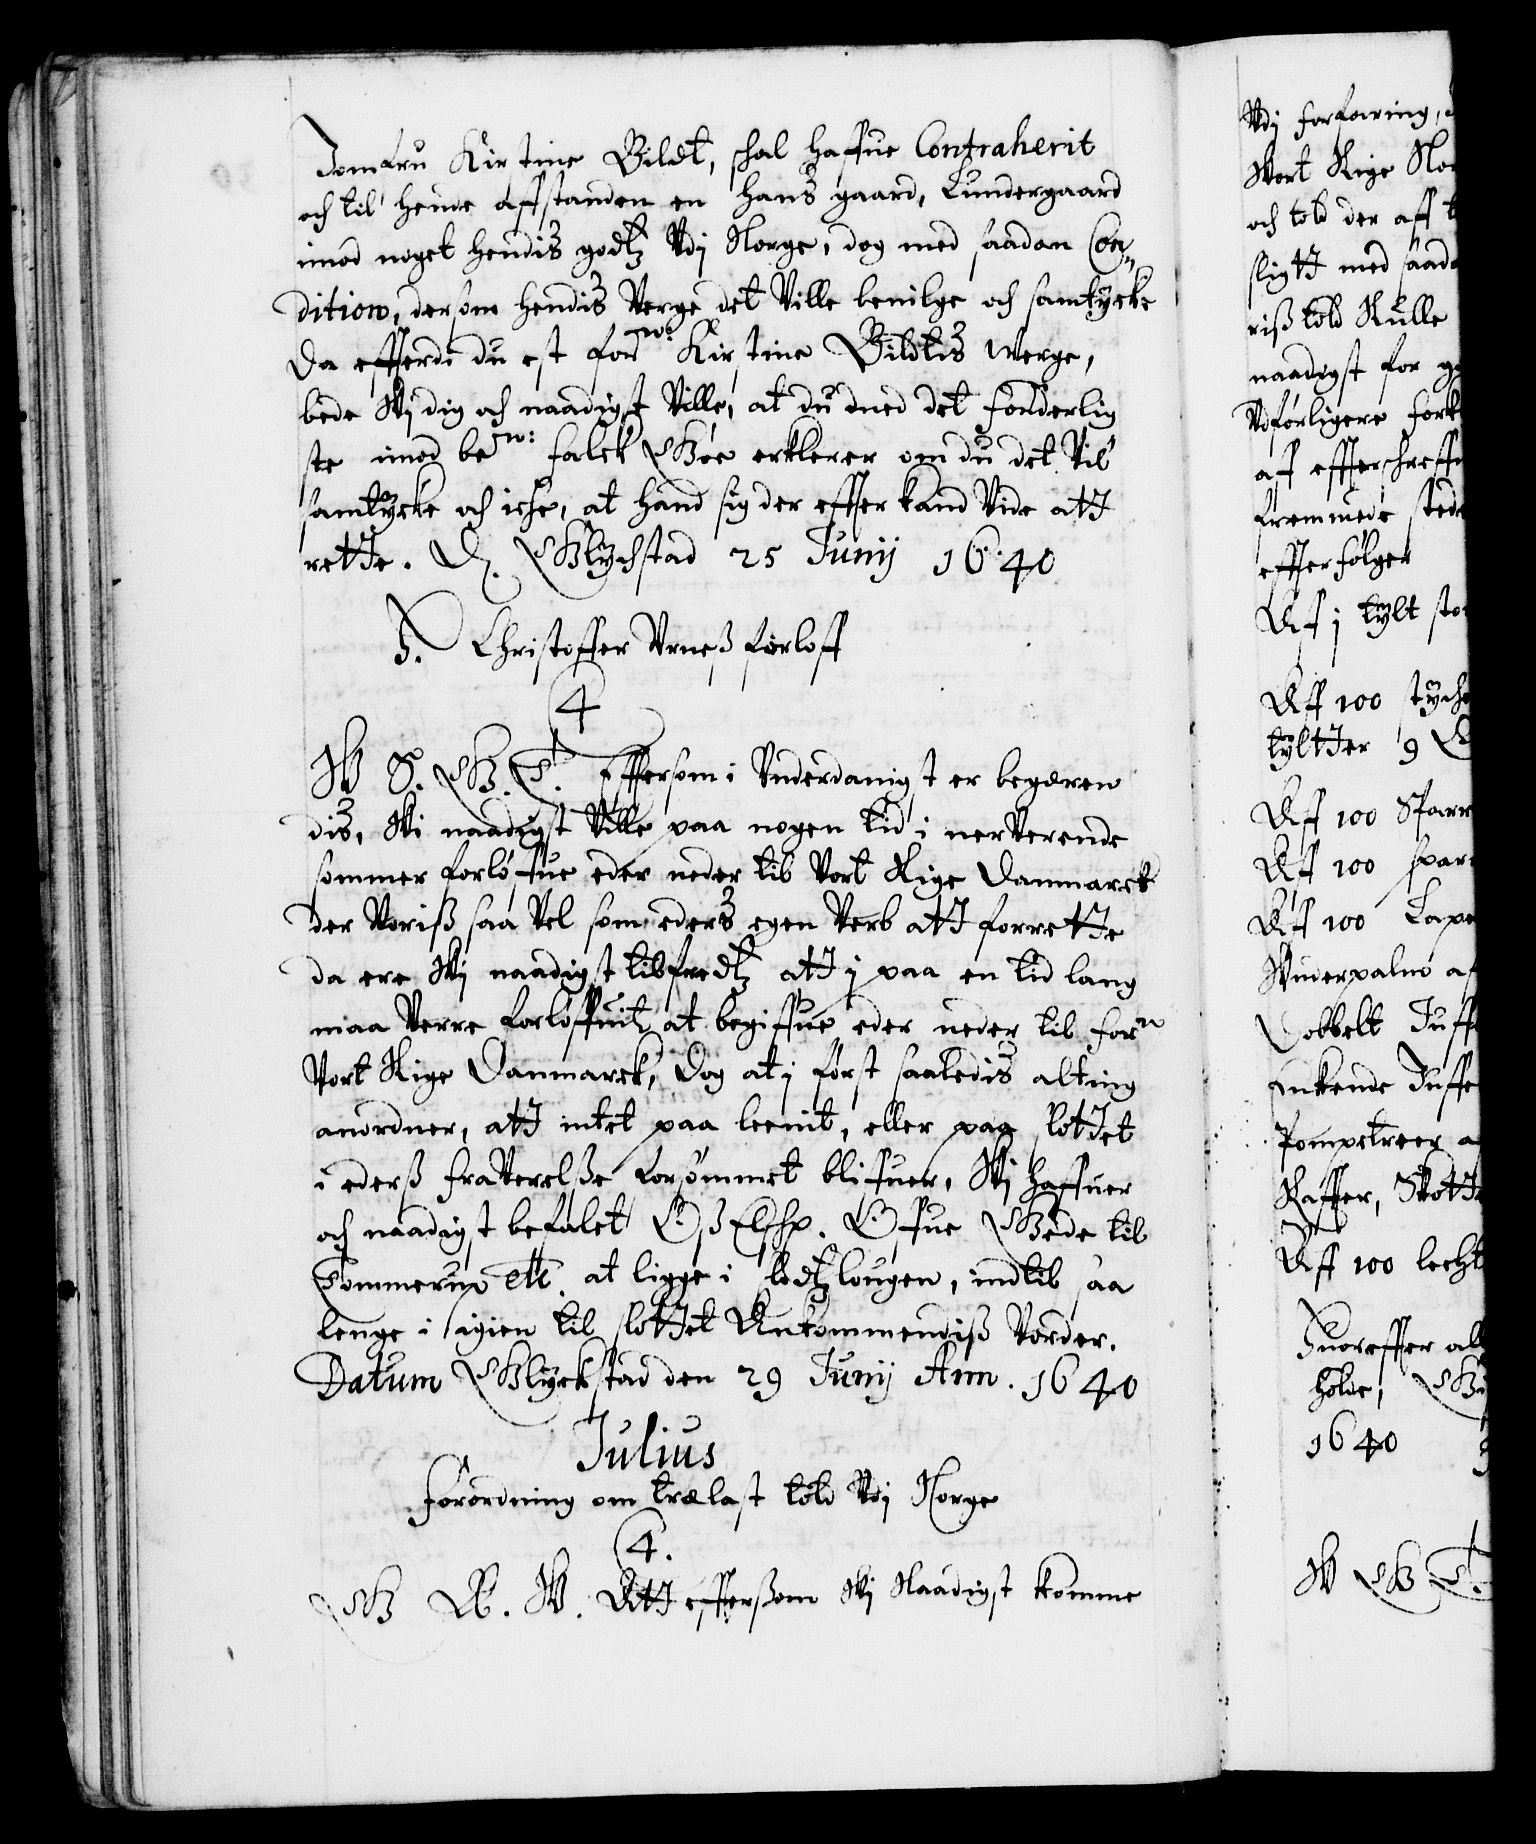 Jomfru Kirstine Bildt, schal haffue Contraherit
och til hende affstanden en hans gaard, Lundergaard
imod noget hendis godtz Vdj Norge, dog med saadan Con-
dition, dersom hendis Verge det Ville beuilge och samtycke
Da effterdi du est forne: Kirstine Bildtis Werge,
bede Wj dig och naadigst Ville, at du med det forderlig
ste imod bete: Falck Gøe erklerer om du det Vil
samtycke och icke, at hand sig der effter kand Vide att
rette. D. Glychstad 25 Junij 1640
H. Christoffer Vrneß forloff
4
W S. G. T. Efftersom i Vnderdanigst er begæren
dis, Wi naadigst Ville paa nogen tid i nerVerende
sommer forløffue eder neder til Vort Rige Danmarck
der Voriß saa Vel som eders egen Verb att forrette
da ere Wj naadigst tilfredtz att j paa en tid lang
maa Verre forløffuit at begiffue eder neder til forne
Vort Rige Danmarck, Dog at j først saaledis alting
anordner, att intet paa leenit, eller paa slottet
i ederß fraVerelße forsømmet bliffuer, Wj haffuer
och naadigst befalet Oß Elschl. Offue Gede til
Tommerup etc. at ligge i Slodtzlougen, indtil saa
lenge i igien til slottet Ankommendiß Vorder.
Datum Glyckstad den 29 Junij Ann. 1640
Julius
Forordning om trælast told Vdj Norge
4.
G A. W. Att effterßom Wj Naadigst komme
Vdj forfaring,
Vort Rige Nor
och told der aff
sligtt med saada
riß told Rulle
naadigst for g
Vdførligere fork
aff effterschreff
fremmede stede
effterfølger
Aff j tylt sto
Aff 100 stycke
tyltter 9
Aff 100 Sparr
Aff 100 spar
Aff 100
Dobbelt Juff
Enkende Juffe
Pompetreer a
Raffter, Skott
Aff 100 lecht
Huoreffter al
holde, G
1640
W G T.